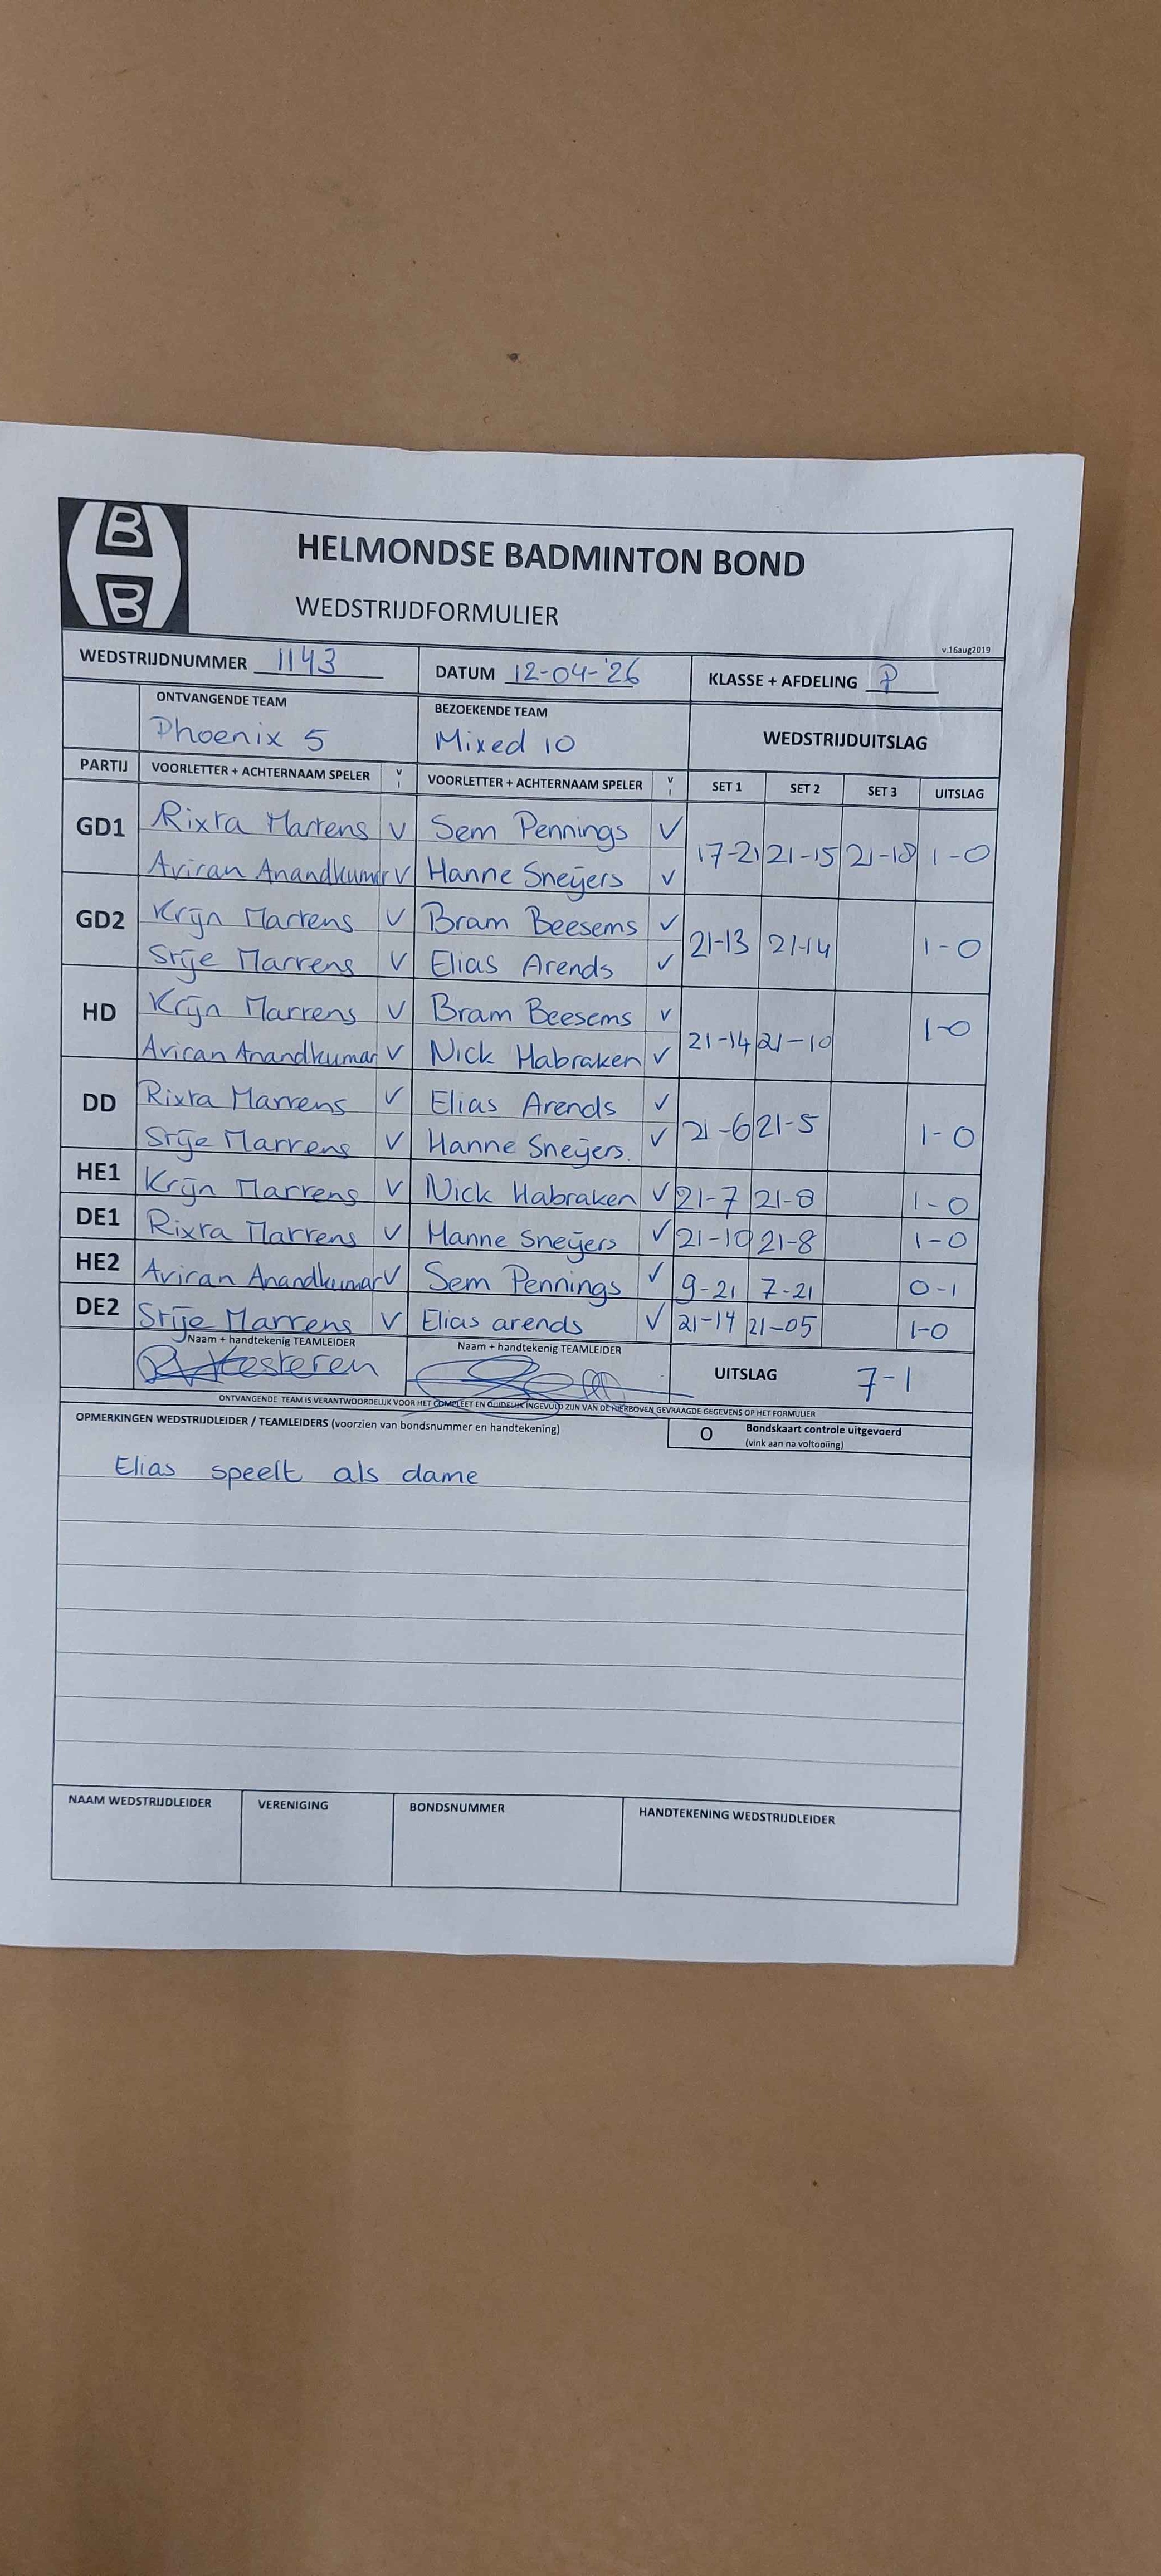 B
B
HELMONDSE BADMINTON BOND
WEDSTRIJDFORMULIER
v.16aug2019
WEDSTRIJDNUMMER 1143 DATUM 12-04-'26 KLASSE + AFDELING P
ONTVANGENDE TEAM BEZOEKENDE TEAM WEDSTRIJDUITSLAG
Phoenix 5 Mixed 10
PARTIJ VOORLETTER + ACHTERNAAM SPELER V I VOORLETTER + ACHTERNAAM SPELER V I SET 1 SET 2 SET 3 UITSLAG
GD1 Rixta Martens V Sem Pennings V 17-21 21-15 21-18 1-0
Aviran Anandkumar V Hanne Sneijers V
GD2 Krijn Martens V Bram Beesems V 21-13 21-14 1-0
Stije Martens V Elias Arends V
HD Krijn Martens V Bram Beesems V 21-14 21-10 1-0
Aviran Anandkumar V Nick Habraken V
DD Rixta Martens V Elias Arends V 21-6 21-5 1-0
Stije Martens V Hanne Sneijers. V
HE1 Krijn Martens V Nick Habraken V 21-7 21-8 1-0
DE1 Rixta Martens V Hanne Sneijers V 21-10 21-8 1-0
HE2 Aviran Anandkumar V Sem Pennings V 9-21 7-21 0-1
DE2 Stije Martens V Elias arends V 21-14 21-05 1-0
Naam + handtekenig TEAMLEIDER Naam + handtekenig TEAMLEIDER UITSLAG 7-1
ONTVANGENDE TEAM IS VERANTWOORDELIJK VOOR HET COMPLEET EN DUIDELIJK INGEVULD ZIJN VAN DE HIERBOVEN GEVRAAGDE GEGEVENS OP HET FORMULIER
OPMERKINGEN WEDSTRIJDLEIDER / TEAMLEIDERS (voorzien van bondsnummer en handtekening) O Bondskaart controle uitgevoerd
(vink aan na voltooiing)
Elias speelt als dame
NAAM WEDSTRIJDLEIDER VERENIGING BONDSNUMMER HANDTEKENING WEDSTRIJDLEIDER